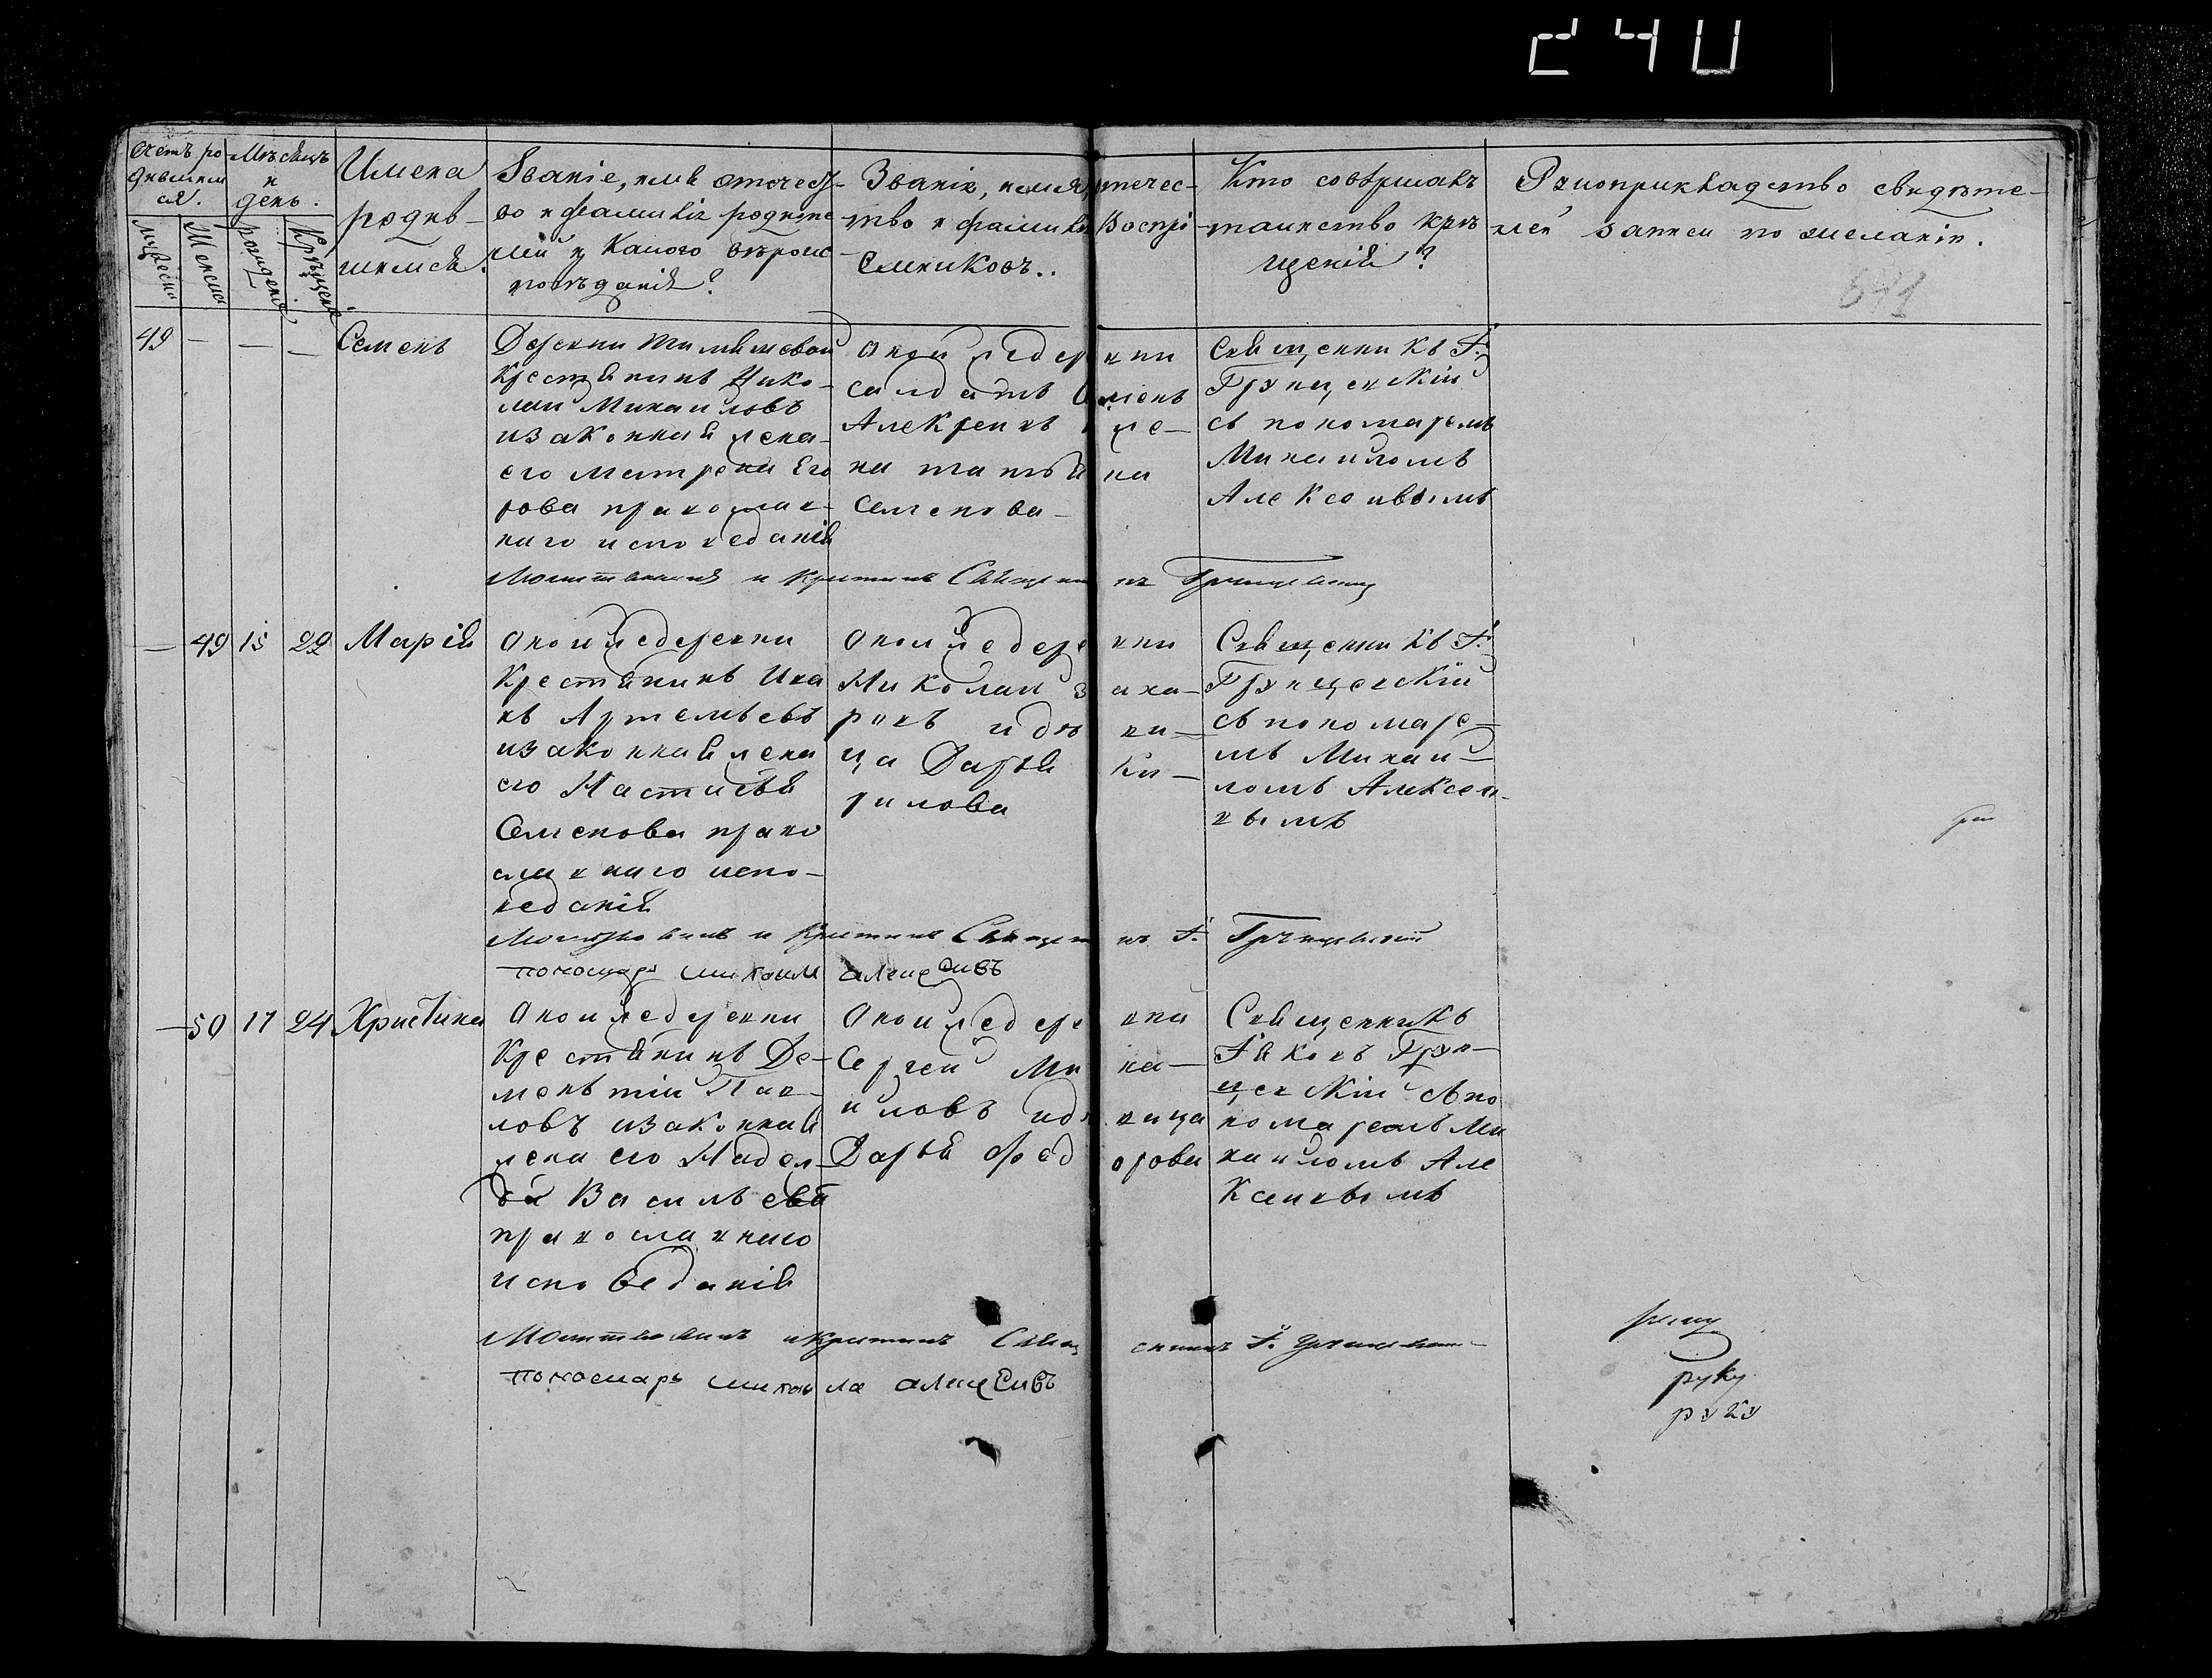 240
Счетъ ро
дившихъ
ся.
Мѣсяцъ
и
день.
Имена
родив-
шихся.
Званіе, имя отечест-
во и фамиліе родите
лей и какого вѣроис
повѣданія?
Званіе, имя, отечес-
тво и фамилія Воспрі
емниковъ..
Кто совершалъ
таинство кре
щенія?
Рукоприкладство свидѣте-
лей записи по желанію.
641
Женска
рожденія
Крещенія
49 — — — Семенъ
Деревни
крестьянинъ Нико-
лай Михаиловъ
изаконная жена
его Матрена Его
рова православ-
наго исповеданія
Оной жедеревни
салдатъ Семенъ
Семенова
Священникъ Г.
съ пономаремъ
Михаиломъ
Алексеивымъ
Молитвовалъ и крестилъ Священникъ
— 49 15 22 Марія
Оной жедеревни
крестьянинъ Ива
нъ Артемьевъ
изаконная жена
его Настасья
Семенова право
славнаго испо-
веданія
Оной жедеревни
Николай Заха-
ровъ идеви-
ца Дарья Ки-
рилова
Священникъ Г.
съ пономаре-
мъ Михаи-
ломъ Алексеи-
вымъ
и крестилъ Священникъ Г.
пономарь михаил алексеивъ
— 50 17 24 Христина
Оной жедеревни
крестьянинъ Де-
ментій Пав-
ловъ изаконная
жена его Надеж-
да Васильева
православнаго
исповеданія
Оной жедеревни
Сергей Миха-
иловъ идевица
Дарья Федорова
Священникъ
съ по
номаремъ Ми
хаиломъ Але
ксеивымъ
Молитвовалъ икрестилъ Священникъ Г.
пономарь михаила алексеивъ
руку
руку